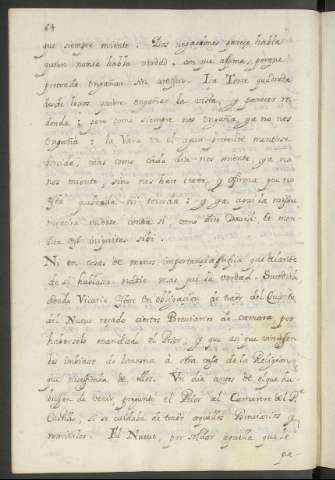 64
que siempre miente: Dos negaciones parece habla
quien nunca habla verdad, con que afirma, porque
pretenda engañar sin artificio. La Torre quadrada
desde lexos pudre engañar la vista, y parecer re-
donda: pero como siempre nos engaña, ya no nos
engaña: la Vara en el agua promete mentirse
torcida, mas como cada dia nos miente, ya no
nos miente, sino nos hace creer, y afirma que no
está quebrada ni torcida: y ya aqui la misma
mentira miente contra sí, como dixo David: Et men-
tita est iniquitas sibi.
Ni en cosas de menos importancia sufria que delante
de si hablara nadie mas que la verdad. Sucedióle
siendo Vicario Prior en obligacion de traer del Quarto
del Nuevo rezado ciertos Breviarios de camara por
haberselo mandado el Prior, y que asi que viniesen
los imbiase de limosna à otra casa de la Religion,
que necesitaba de ellos. Un dia antes de el que hu-
biesen de venir, preguntó el Prior al Camarero del P.e
Castilla, si se cuidaba de traer aquellos Breviarios y
remitirlos. El Nuevo, por soldar aquella que le
pa-